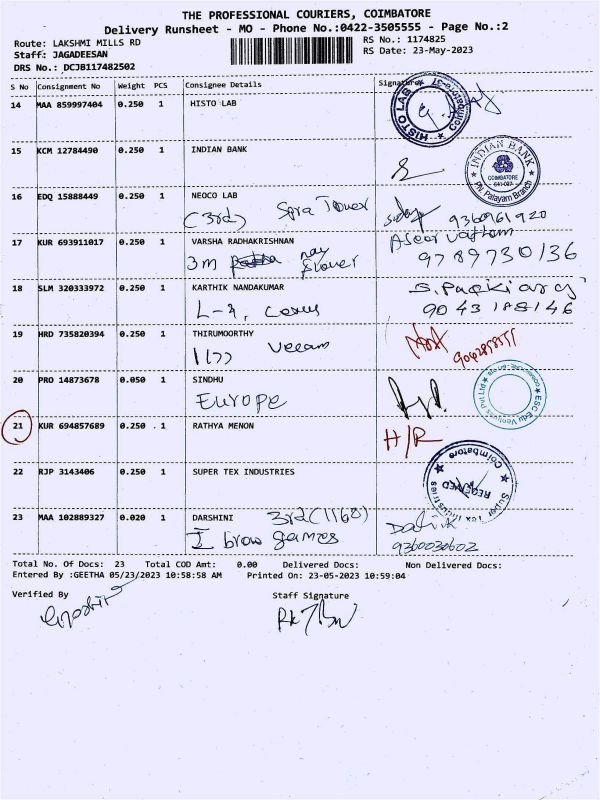 THE PROFESSIONAL COURIERS, COIMBATORE
Delivery Runsheet - MO - Phone No.:0422-3505555 - Page No.:2
Route: LAKSHMI MILLS RD
RS No.: 1174825
Staff: JAGADEESAN
RS Date: 23-May-2023
DRS No.: DCJB117482502
S No Consignment No Weight PCS Consignee Details Signature
14 MAA 859997404 0.250 1 HISTO LAB
HISTO LAB
15 KCM 12784490 0.250 1 INDIAN BANK
INDIAN BANK
COIMBATORE
PN. Palayam Branch
16 EDQ 15888449 0.250 1 NEOCO LAB
(3rd) Tower 9360961920
17 KUR 693911017 0.250 1 VARSHA RADHAKRISHNAN
3m 9789730136
18 SLM 320333972 0.250 1 KARTHIK NANDAKUMAR
9043188146
19 HRD 735820394 0.250 1 THIRUMOORTHY
20 PRO 14873678 0.050 1 SINDHU
Europe
21 KUR 694857689 0.250 . 1 RATHYA MENON
H/R
22 RJP 3143406 0.250 1 SUPER TEX INDUSTRIES
Super Tex Industries
Coimbatore
RECEIVED
23 MAA 102889327 0.020 1 DARSHINI 3rd (1168)
I brow games
9360030602
Total No. Of Docs: 23 Total COD Amt: 0.00 Delivered Docs: Non Delivered Docs:
Entered By :GEETHA 05/23/2023 10:58:58 AM Printed On: 23-05-2023 10:59:04
Verified By Staff Signature